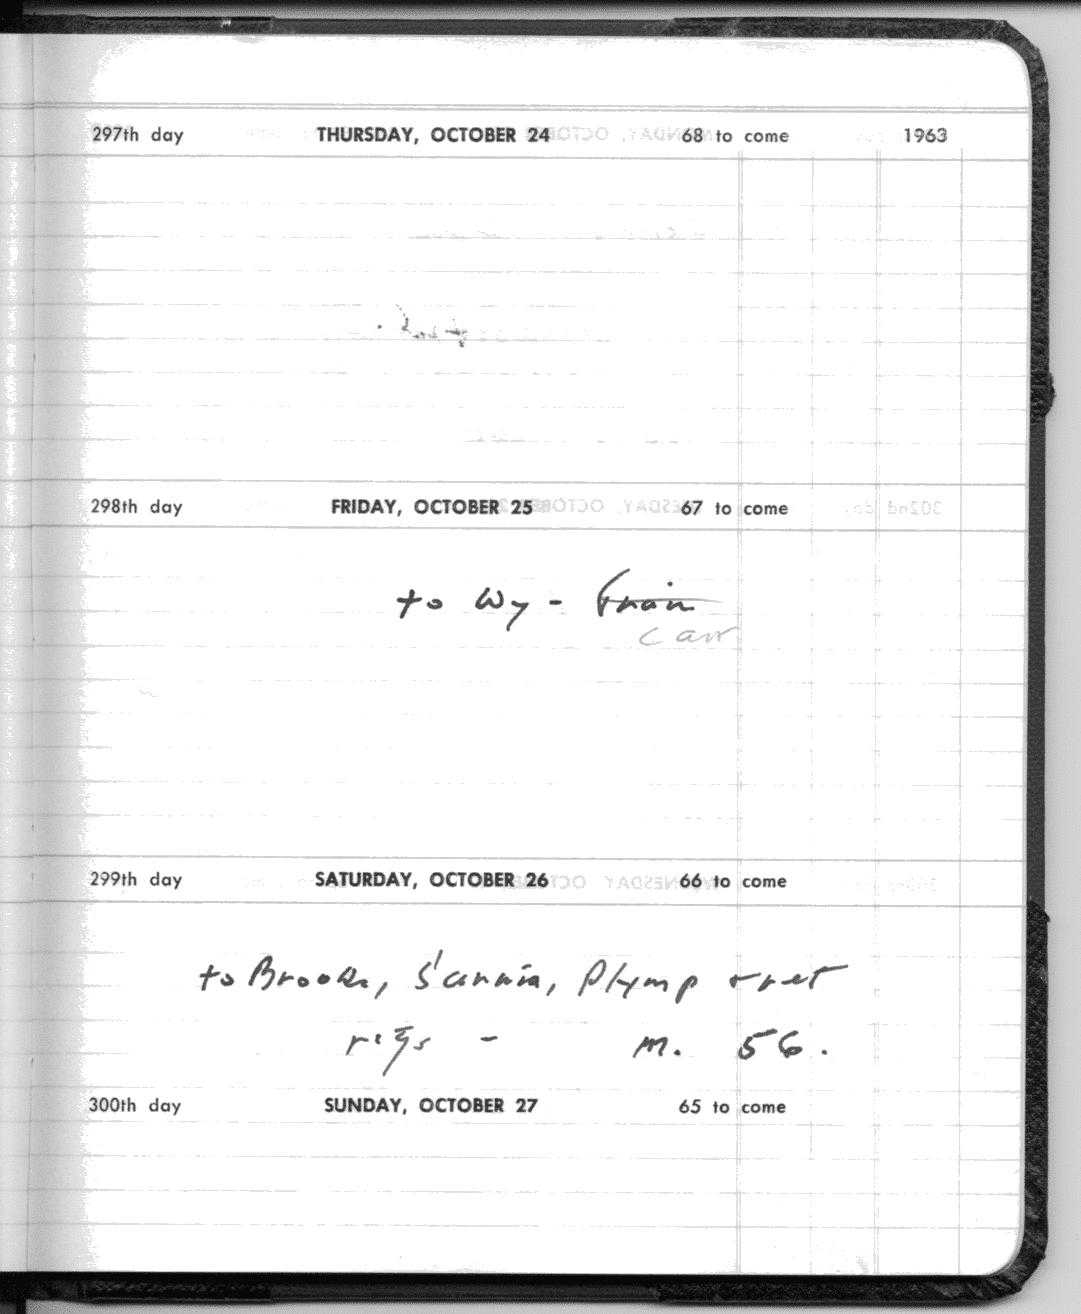 297th day THURSDAY, OCTOBER 24 68 to come 1963
298th day FRIDAY, OCTOBER 25 67 to come
to Wy - Train
Carr
299th day SATURDAY, OCTOBER 26 66 to come
to Brooks, S'annin, Plymp + ret
regs - m. 56.
300th day SUNDAY, OCTOBER 27 65 to come